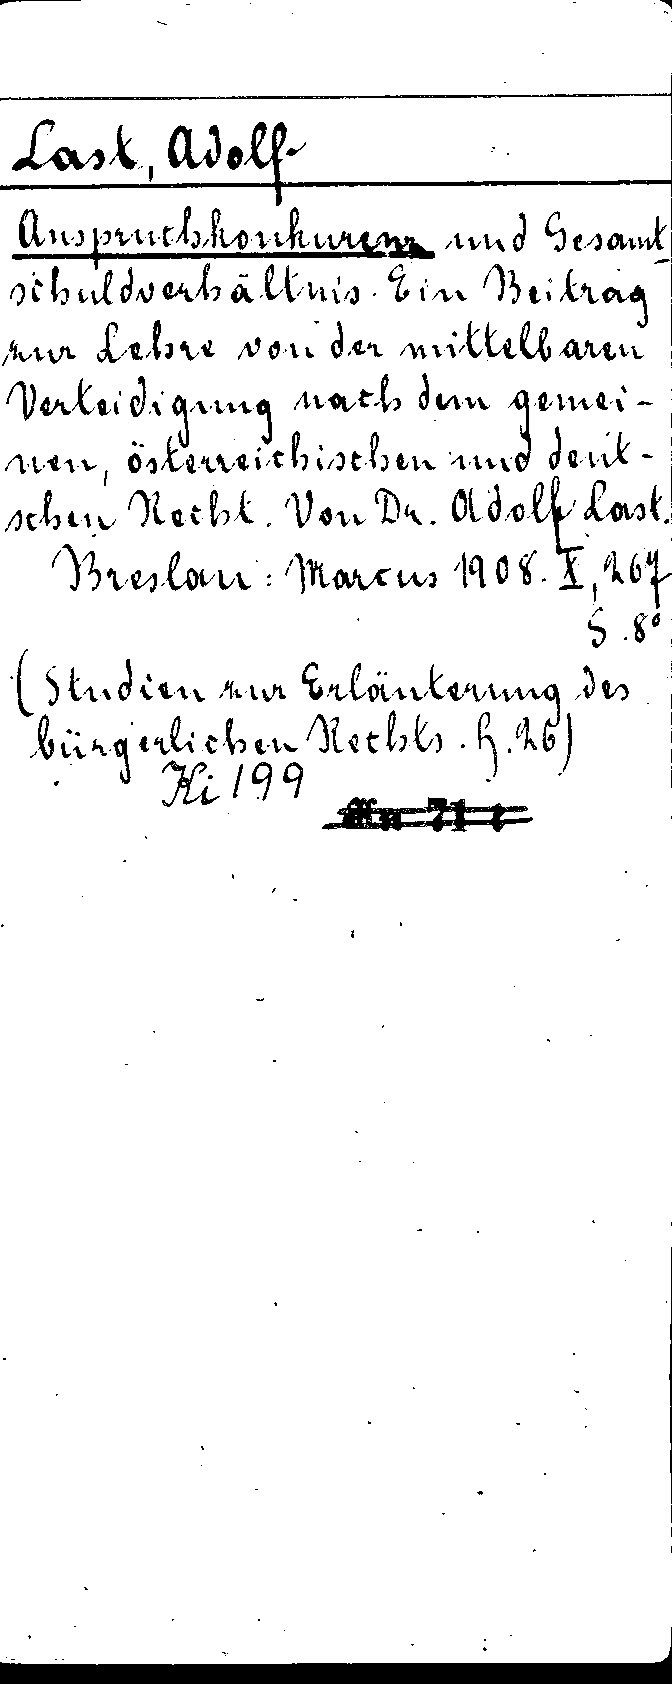 Last, Adolf
Anspruchskonkurenz und Gesamt-
schuldverhältnis. Ein Beitrag
zur Lehre von der mittelbaren
Verteidigung nach dem gemei-
nen, österreichischen und deut-
schen Recht. Von Dr. Adolf Last.
Breslau: Marcus 1908. X, 267
S. 8°
(Studien zur Erläuterung des
bürgerlichen Rechts. H. 26)
Ki 199